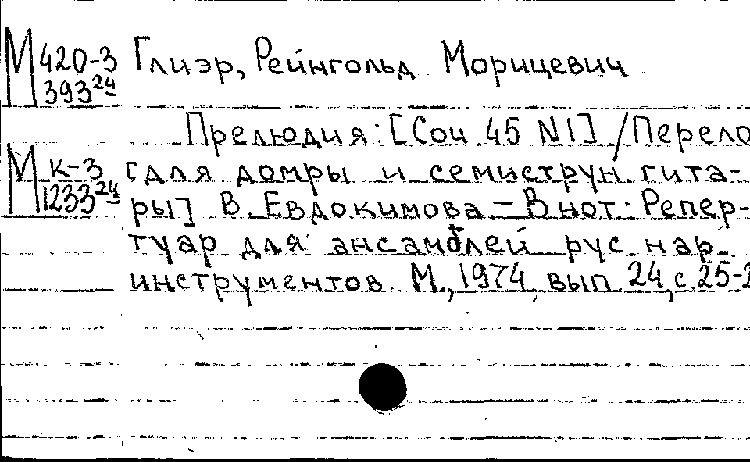 М 420-3 Глиэр, Рейнгольд Морицевич
393 24
Прелюдия: [Соч. 45 N1] / Перело
М к-3 [для домры и семиструн. гита-
1233 24 ры] В. Евдокимова - В нот: Репер-
туар для ансамблей рус. нар.
инструментов. М., 1974, вып. 24, с. 25-